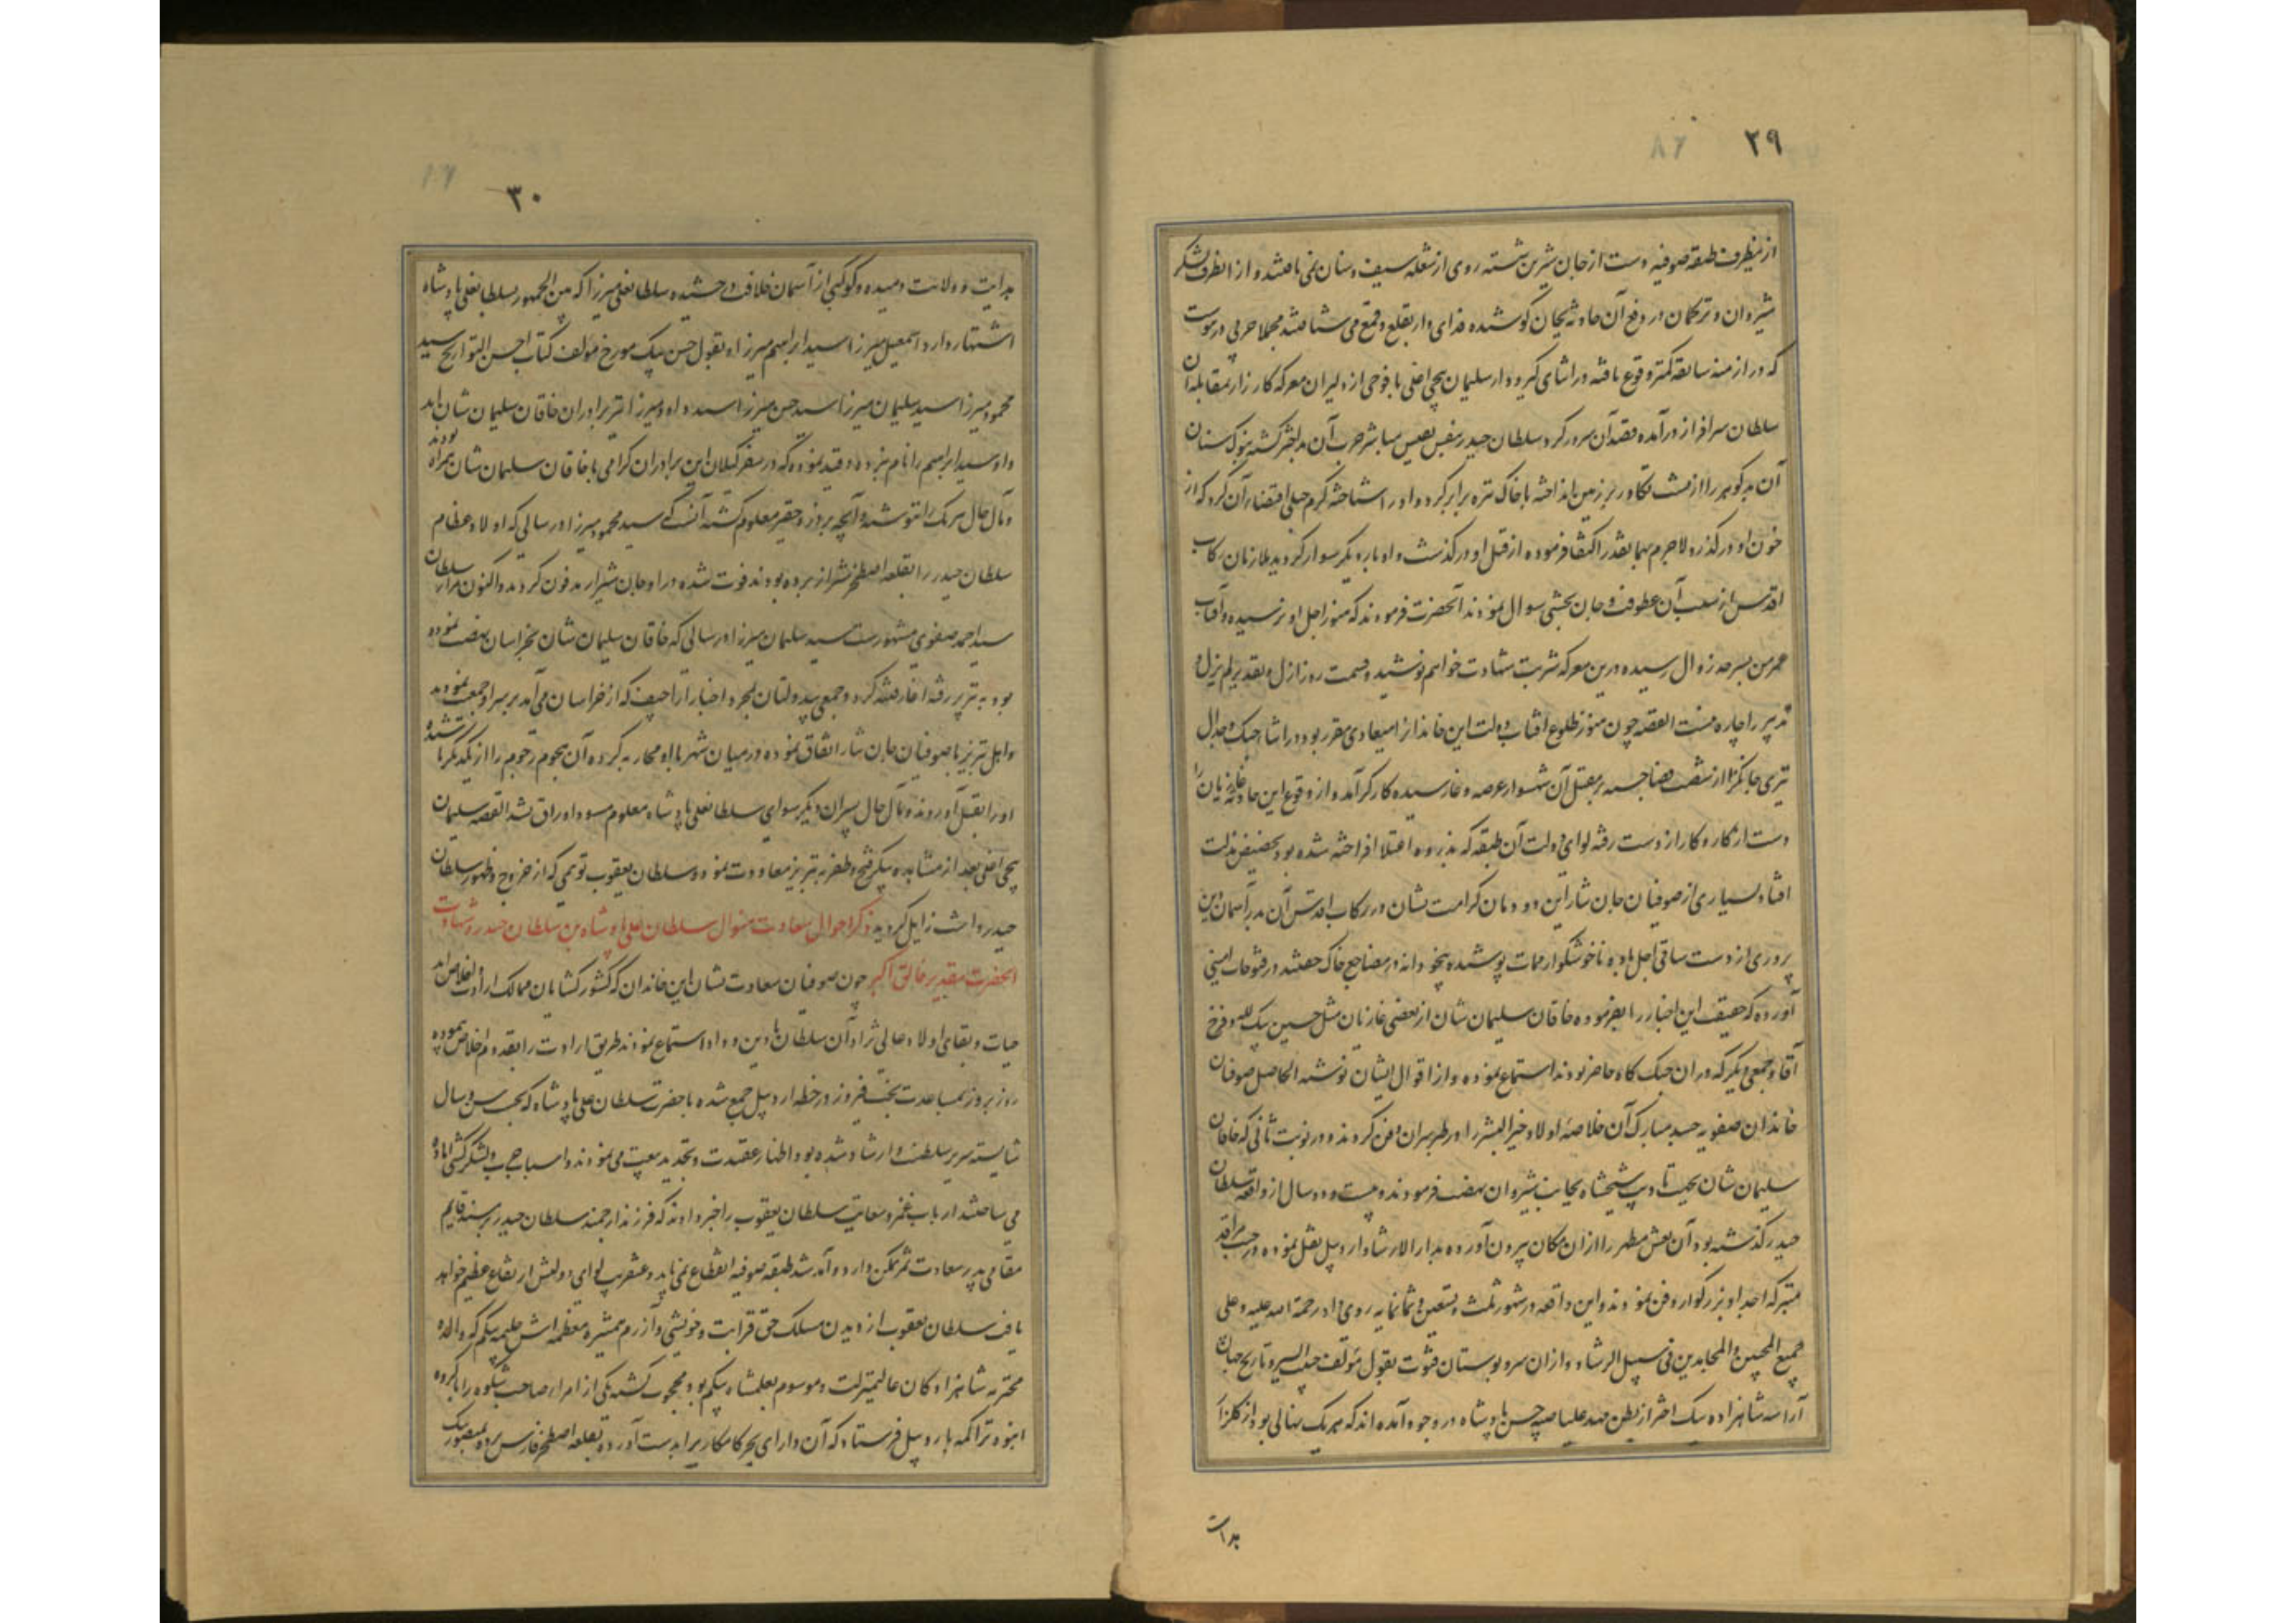 ۲۹
۸۶
ازینطرف طبقه صوفیه دست از جان شیرین شسته روی از شعله سیف و سنان نمی تافتند و از انطرف لشکر
شیروان و ترکمان در دفع آن حادثه بجان کوشیده فدای وار بقلع و قمع می شتافتند مجملا حربی در پیوست
که در ازمنه سابقه کمتر وقوع یافته در اثنای گیر و دار سلیمان بیجن اغلی با فوجی از دلیران معرکه کارزار بمقابله آن
سلطان سرافراز درآمده قصد آن سرور کرد سلطان حیدر بنفس نفیس مباشر حرب آن بد اختر گشته بنوک سنان
آن بد گوهر را از پشت تکاور بر زمین انداخته با خاک تیره برابر کرد و او را شناخته کرم جبلی اقتضاء آن کرد که از
خون او درگذرد لاجرم بهما بقدر اکتفا فرموده از قتل او درگذشت و او بار دیگر سوار گردید ملازمان رکاب
اقدس از سبب آن عطوفت و جان بخشی سوال نمودند آنحضرت فرمودند که هنوز اجل او نرسیده و آفتاب
عمر من بسرحد زوال رسیده درین معرکه شربت شهادت خواهم نوشید و قسمت روز ازل و تقدیر لم یزل و
تدبیر را چاره نیست القصه چون هنوز طلوع افتاب دولت این خاندانرا میعادی مقرر بود در اثناء جنک و جدال
تیری جانگزا از شصت قضا جسته بر مقتل آن شهسوار عرصه وغا رسیده کارگر آمد و از وقوع این حادثه غازیان را
دست از کار و کار از دست رفته لوای دولت آن طبقه که بذروه اعتلا افراخته شده بود بحضیض مذلت
افتاد بسیاری از صوفیان جان نثار این دودمان کرامت نشان در رکاب اقدس آن مهر آسمان دین
پروری از دست ساقی اجل باده ناخوشگوار ممات نوشیده بیخودانه در مضاجع خاک خفتند در فتوحات امینی
آورده که حقیقت این اخبار را بفرموده خاقان سلیمان شان از بعضی غازیان مثل حسین بیک لله و فرخ
آقا و جمعی دیگر که در ان جنک گاه حاضر بودند استماع نموده و از اقوال ایشان نوشته الحاصل صوفیان
خاندان صفویه جسد مبارک آن خلاصه اولاد خیر البشر را در طبرسران دفن کردند و در نوبت ثانی که خاقان
سلیمان شان بجهت تادیب شیخشاه بجانب شیروان نهضت فرمودند و بیست و دو سال از واقعه سلطان
حیدر گذشته بود آن نعش مطهر را از ان مکان بیرون آورده بدار الارشاد اردبیل نقل نموده در جنب مراقد
متبرکه اجداد بزرگوار دفن نمودند و این واقعه در شهور ثلث و تسعین و ثمانمایه روی داد رحمة الله علیه و علی
جمیع المحبین و المجاهدین فی سبیل الرشاد و از ان سرو بوستان فتوت بقول مؤلف حبیب السیر و تاریخ جهان
آرا سه شاهزاده نیک اختر از بطن مهد علیا صبیه حسن پادشاه در وجود آمده اند که هر یک نهالی بود از گلزار
هدایت
۳۰
هدایت و ولایت دمیده و کوکبی از آسمان خلافت درخشیده سلطانعلی میرزا که بین الجمهور بسلطانعلی پادشاه
اشتهار دارد اسمعیل میرزا سید ابراهیم میرزا و بقول حسن بیک مورخ مؤلف کتاب احسن التواریخ سید
محمود میرزا سید سلیمان میرزا سید حسن میرزا سید داود میرزا نیز برادران خاقان سلیمان شان اند
و او سید ابراهیم را نام نبرده و قید نموده که در سفر گیلان این برادران گرامی با خاقان سلیمان شان همراه بودند
و مآل حال هر یک را ننوشته و آنچه بر وزه حقیر معلوم گشته آنست که سید محمود میرزا در سالی که اولاد عظام
سلطان حیدر را بقلعه اصطخر شیراز برده بودند فوت شده در اوجان شیراز مدفون گردید و اکنون بمزار سلطان
سید احمد صفوی مشهورست سید سلیمان میرزا در سالی که خاقان سلیمان شان بخراسان نهضت نموده
بود به تبریز رفته اغاز فتنه کرد و جمعی بیدولتان بمجرد اخبار اراجیف که از خراسان می آمد بر سر او جمعیت نمودند
و اهل تبریز با صوفیان جان نثار اتفاق نموده در میان شهر با او محاربه کرده آن هجوم رجوم را از یکدیگر پاشیده
او را بقتل آوردند و مآل حال پسران دیگر سوای سلطانعلی پادشاه معلوم مسود اوراق نشد القصه سلیمان
بیجن اغلی بعد از مشاهده پیکر فتح و ظفر به تبریز معاودت نمود و سلطان یعقوب توهمی که از خروج و ظهور سلطان
حیدر داشت زایل گردید ذکر احوال سعادت منوال سلطان علی پادشاه بن سلطان حیدر و شهادت
انحضرت بتقدیر خالق اکبر چون صوفیان سعادت نشان این خاندان که کشور گشایان ممالک ارادت و اخلاص اند
حیات و بقای اولاد عالی نژاد آن سلطان با دین و داد استماع نمودند طریق ارادت را بقدم اخلاص پیموده
روز بروز بمساعدت بخت فیروز در خطه اردبیل جمع شده با حضرت سلطان علی پادشاه که بحسب سن و سال
شایسته سریر سلطنت و ارشاد شده بود اظهار عقیدت و تجدید بیعت می نمودند و اسباب حرب و لشکرکشی اماده
می ساختند ارباب غمز و سعایت سلطان یعقوب را خبر دادند که فرزند ارجمند سلطان حیدر بر مسند قایم
مقامی پدر سعادت ثمر تمکن دارد و آمد شد طبقه صوفیه انقطاع نمی یابد و عنقریب لوای دولتش ارتفاع عظیم خواهد
یافت سلطان یعقوب از دیدن مسلک حق قرابت و خویشی و آزرم همشیره معظمه اش حلیمه بیگم که والده
محترمه شاهزادگان عالیمنزلت و موسوم بعلمشاه بیگم بود محجوب گشته یکی از امراء صاحب شکوه را با گروه
انبوه تراکمه باردبیل فرستاد که آن دارای بحر کامکاری را بدست آورده بقلعه اصطخر فارس برده بمنصور بیک